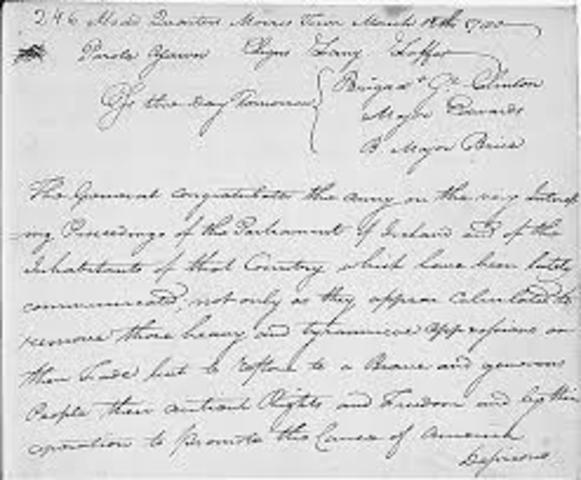 246 Head Quarters Morris Town March 16th 1780
Parole Saxon Signs Lang
Of the day Tomorrow Brigadr Gl Clinton
Major Edwards
B Major Brice
The General congratulates the army on the very Interest
ing Proceedings of the Parliament of Ireland and of the
Inhabitants of that Country which have been lately
communicated, not only as they appear calculated to
remove those heavy and tyrannical oppressions on
their Trade but to restore to a Brave and generous
People their antient Rights and Freedom and by their
operation to promote the Cause of America
Desirous